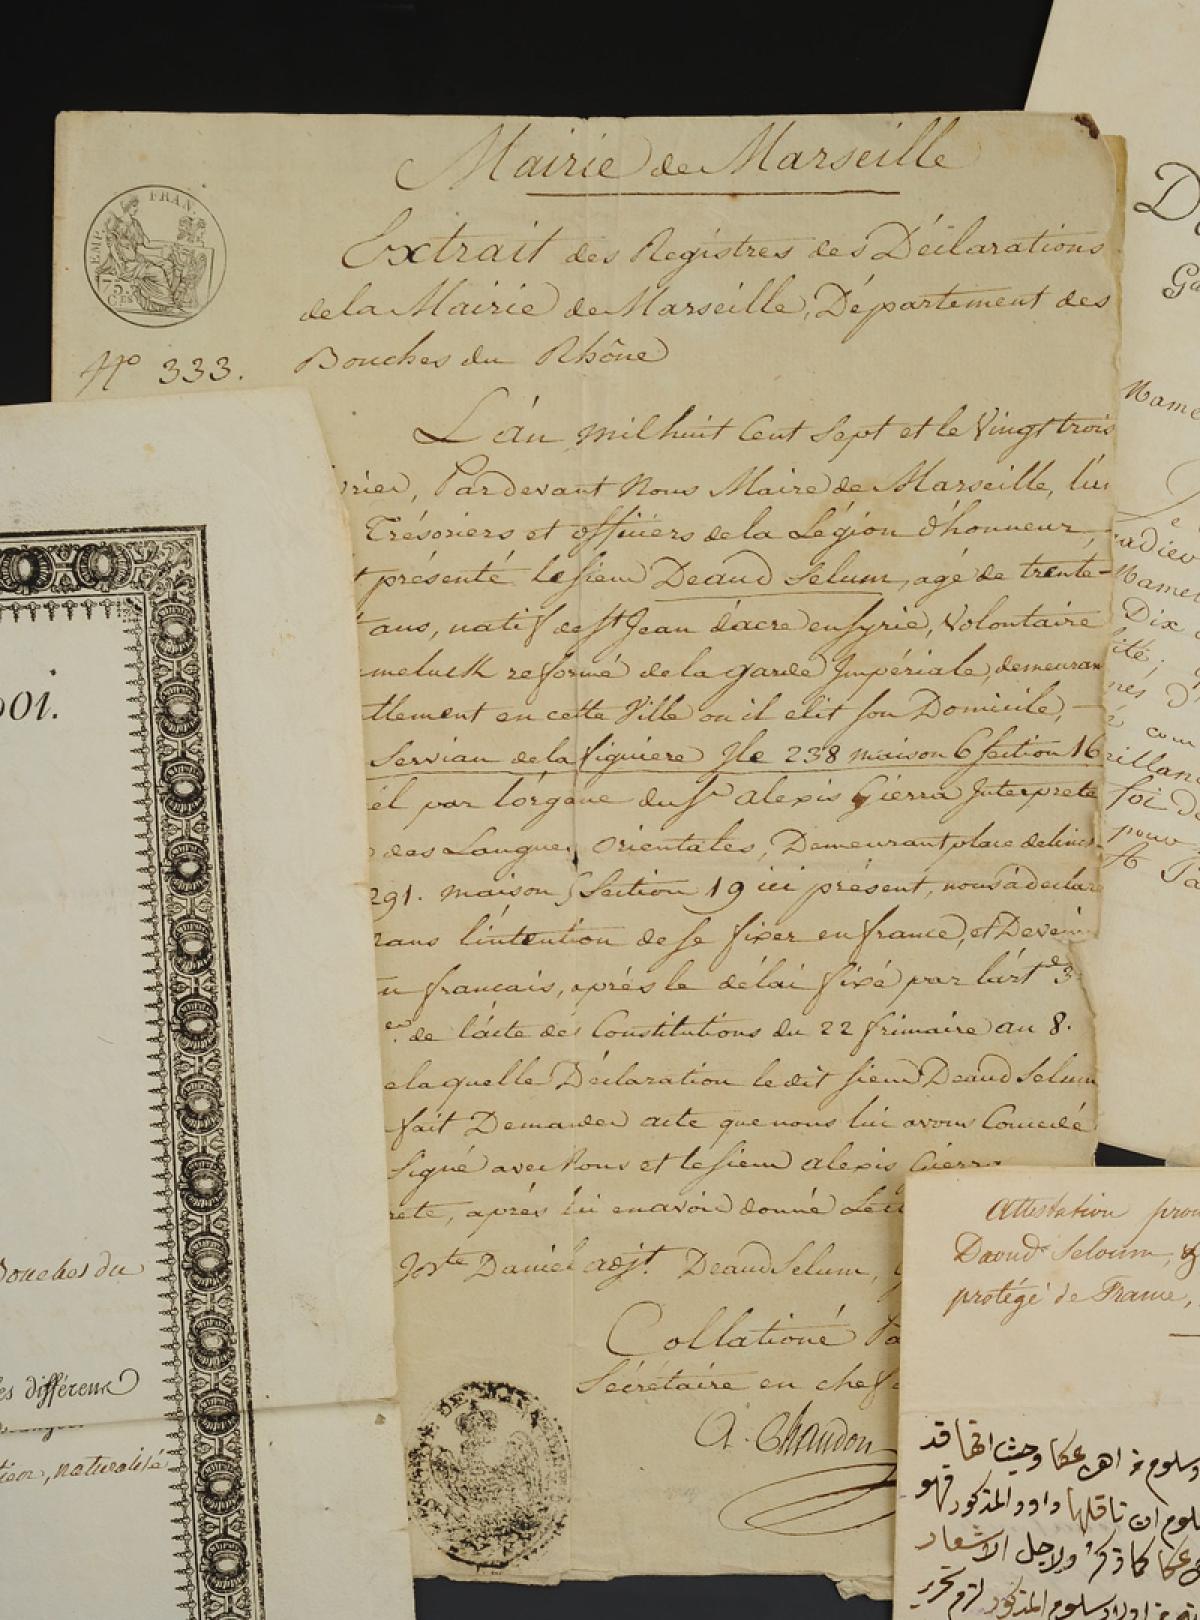 Mairie de Marseille
EMP. FRAN.
75.
CES
Extrait des Registres des Déclarations
de la Mairie de Marseille, Département des
Bouches du Rhône
No 333.
L'án mil huit Cent Sept et le Vingt trois
rier, Pardevant Nous Maire de Marseille, l'un
Trésoriers et officiers de la Légion d'honneur,
t présenté le sieur Deaud Selum, agé de trente-
ans, natif de St Jean d'acre en Syrie, Volontaire
meluck reformé de la garde Impériale, demeuran
llement en cette Ville ou il elit son Domicile,
Servian de la figuiere Jle 238 maison 6 Section 16
el par l'organe du Sr alexis Gierra Interprete
des Langues orientales, Demeurant place de
291. maison 5 Section 19 ici présent, nous à declaré
dans l'intention de se fixer en france, et Devenir
n francais, aprés le délai fixé par l'art 3
de l'acte des Constitutions du 22 frimaire an 8.
elaquelle Déclaration le dit sieur Deaud Selum
fait Demander acte que nous lui avons Concedé
Signé avec Nous et le sieur alexis Gierra
rete, aprés lui en avoir donné Lec
Daniel adjt. Deaud Selum,
Collationé Pa
Sécrétaire en chef
A. Chaudon
OI.
Bouches du
es différens
tien, naturalisé
D
Gal
Mame
adiev
Mamel
Dix
ité;
nes d'
com
illanc
foi de
pour
St Pa
attestation pro
Daoud Seloum, &
protégé de France,
وسلوم من اهل عكا وحيث انها قد
لوم ان ناقلها داوود المذكور فهو
عكا كما ذكر ولاجل الاشعار
سلوم المذكور لزم تحرير